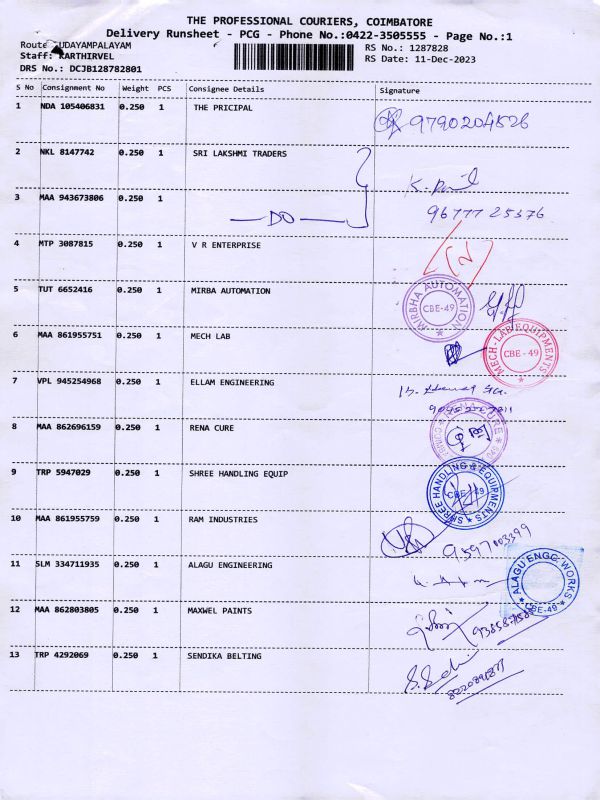 THE PROFESSIONAL COURIERS, COIMBATORE
Delivery Runsheet - PCG - Phone No.:0422-3505555 - Page No.:1
Route UDAYAMPALAYAM
Staff: KARTHIRVEL
DRS No.: DCJB128782801
RS No.: 1287828
RS Date: 11-Dec-2023
S No Consignment No Weight PCS Consignee Details Signature
1 NDA 105406831 0.250 1 THE PRICIPAL 9790204526
2 NKL 8147742 0.250 1 SRI LAKSHMI TRADERS
3 MAA 943673806 0.250 1 DO 9677725376
4 MTP 3087815 0.250 1 V R ENTERPRISE
5 TUT 6652416 0.250 1 MIRBA AUTOMATION MIRBHA AUTOMATION CBE-49
6 MAA 861955751 0.250 1 MECH LAB MECH-LAB EQUIPMENTS CBE-49
7 VPL 945254968 0.250 1 ELLAM ENGINEERING
8 MAA 862696159 0.250 1 RENA CURE RENA CURE
9 TRP 5947029 0.250 1 SHREE HANDLING EQUIP SHREE HANDLING EQUIPMENTS CBE-49
10 MAA 861955759 0.250 1 RAM INDUSTRIES
11 SLM 334711935 0.250 1 ALAGU ENGINEERING ALAGU ENGG WORKS CBE-49
12 MAA 862803805 0.250 1 MAXWEL PAINTS
13 TRP 4292069 0.250 1 SENDIKA BELTING